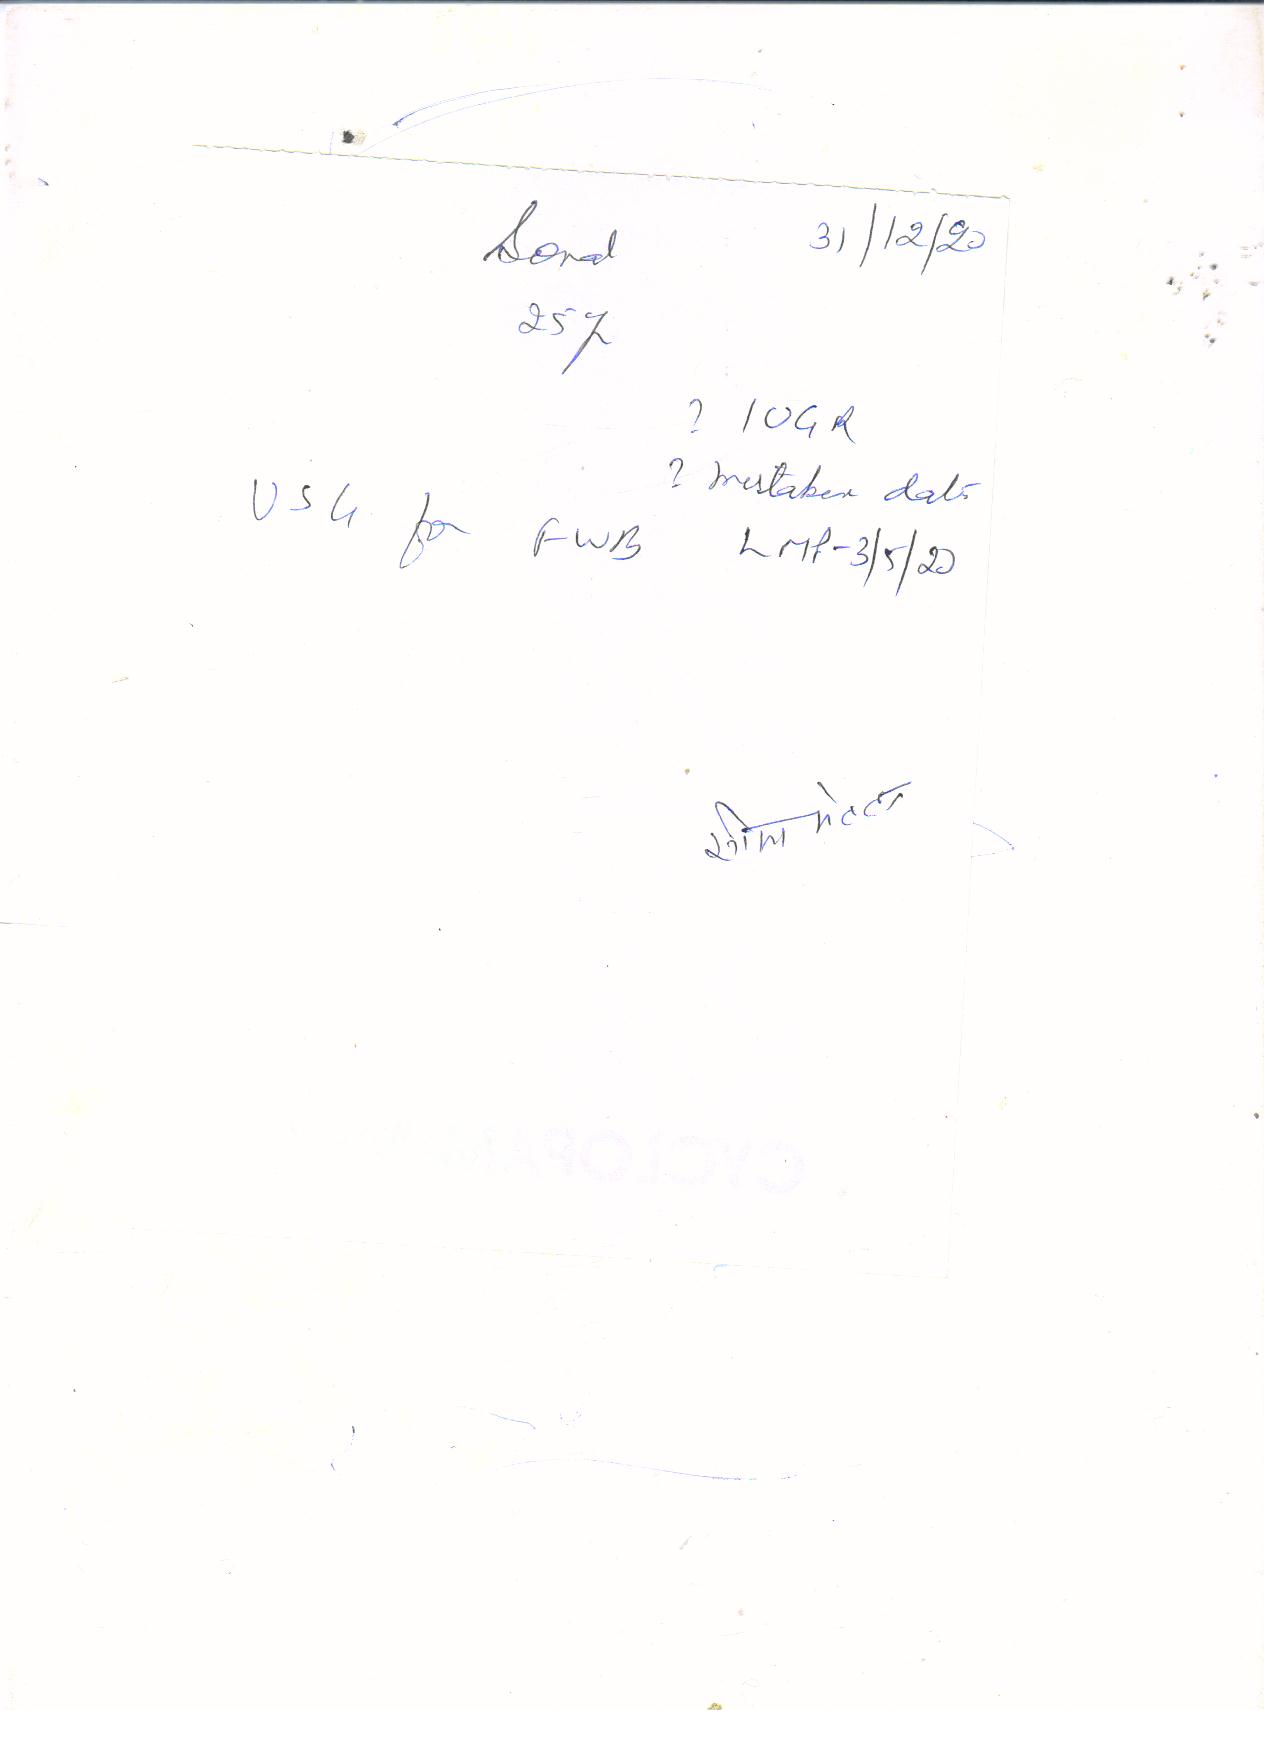 Sonal 31/12/20
25y
? IUGR
? mistaken date
USG for FWB LMP-3/5/20